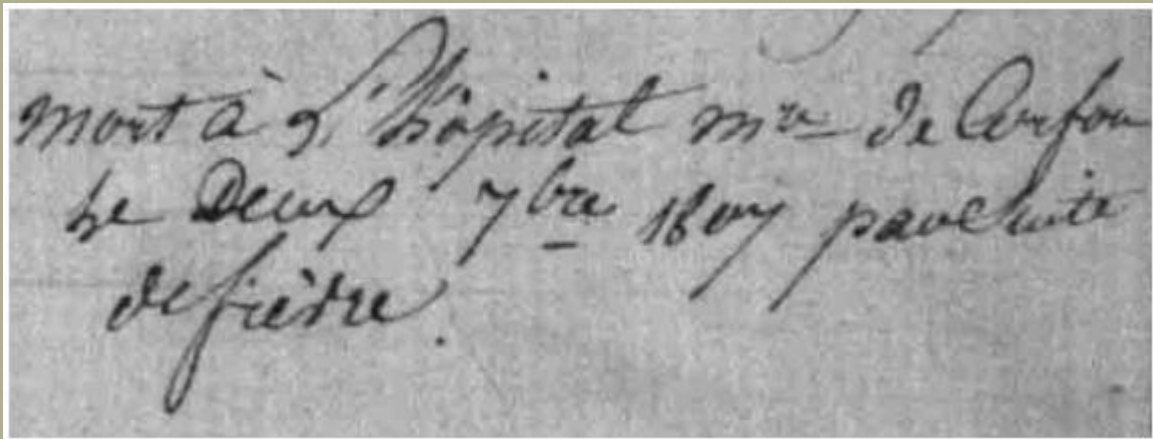 mort à L'hôpital mre de Corfou
Le Deux 7bre 1807 par Suite
de fièvre.